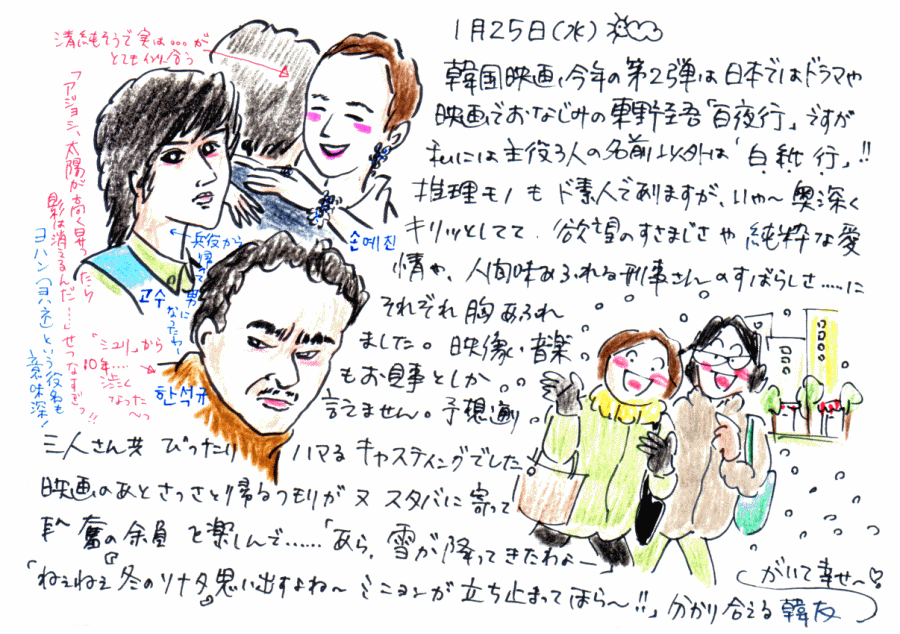 1月25日(水)
韓国映画、今年の第2弾は日本ではドラマや
映画でおなじみの東野圭吾「白夜行」ですが
私には主役3人の名前以外は「白紙行」!!
推理モノもド素人でありますが、いや〜奥深く
キリッとしてて、欲望のすさまじさや純粋な愛
情や、人間味あふれる刑事さんのすばらしさ……に
それぞれ胸あふれ
ました。映像・音楽
もお見事としか
言えません。予想通り
三人さん共 ぴったり ハマる キャスティングでした!
映画のあとさっさと帰るつもりが又 スタバに寄って
奮の余韻を楽しんで……「あら、雪が降ってきたわよー」
「ねぇねぇ『冬のソナタ』思い出すよね〜 ミニョンが立ち止まってほら〜!!」分かり合える韓友
がいて幸せ〜♡
清純そうで実は…が
とても似合う
「アジョシ、太陽が高く昇ったら
影は消えるんだ…」せつなすぎっ!!
ヨハン(ヨハネ)という役名も
意味深!
兵役から
帰って男に
なったわ〜
고수
손예진
「シュリ」から
10年…
渋く
なった
〜っ
한석규